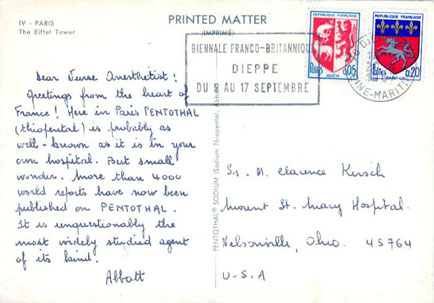 IV - PARIS
The Eiffel Tower
PRINTED MATTER
(IMPRIMÉ)
BIENNALE FRANCO-BRITANNIQUE
DIEPPE
DU 8 AU 17 SEPTEMBRE
REPUBLIQUE FRANÇAISE
Postes 0,05
AUCH
REPUBLIQUE FRANÇAISE
Postes 0,20
SAINT-LO
INE-MARIT
Dear Nurse Anesthetist:
Greetings from the heart of
France! Here in Paris PENTOTHAL
(thiopental) is probably as
well-known as it is in your
own hospital. But small
wonder. More than 4000
world reports have now been
published on PENTOTHAL.
It is unquestionably the
most widely studied agent
of its kind.
Abbott
PENTOTHAL® SODIUM (Sodium Thiopental, Abbott)
Sr. M. Clarence Kirsch
Mount St. Mary Hospital.
Nelsonville, Ohio. 45764
U-S-A